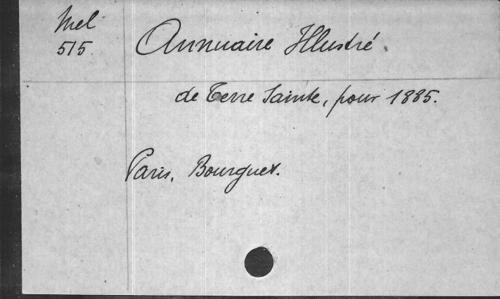 Mel
515
Annuaire Illustré.
de Terre Sainte, pour 1885.
Paris, Bourguet.